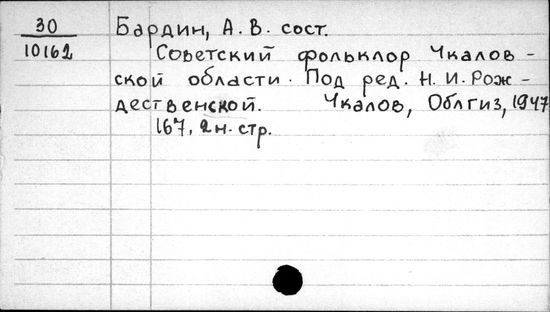 30 Бардин, А. В. сост.
10162 Советский фольклор Чкалов-
ской области. Под ред. Н. И. Рож-
дественской. Чкалов, Облгиз, 1947
167, 2 н. стр.